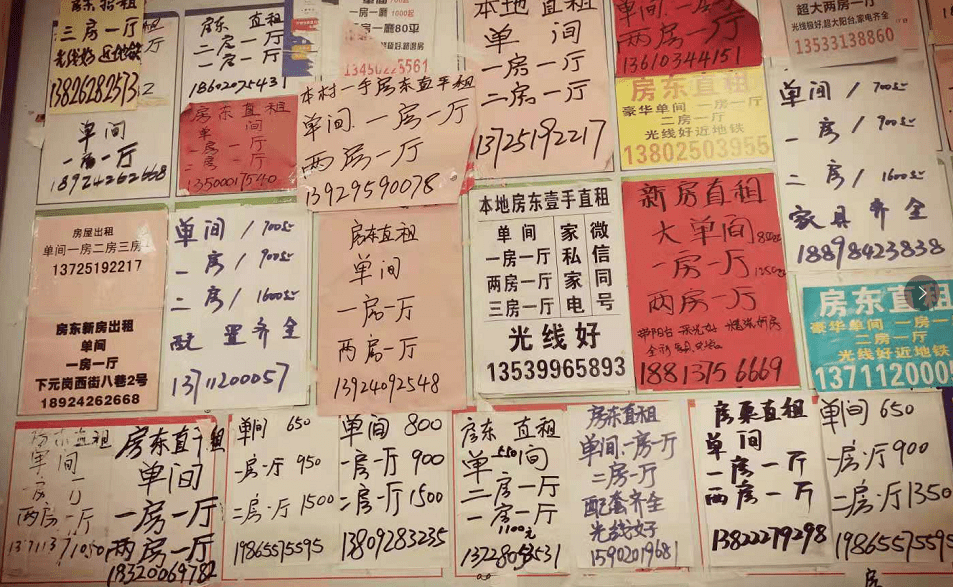 房东招租
三房一厅
光线好 近地铁
13826282513
单间
一房一厅
18924262668
房东 直租
二房一厅
一房一厅
18602025431
房东直租
单间
一房一厅
二房一厅
13500017540
一房一厅 1000起
一房一厅80平
13450225561
本村一手房东直平租
单间.一房一厅
两房一厅
13929590078
本地 直租
单间
一房一厅
二房一厅
13725192217
单间
一房一厅
两房一厅
13610344151
房东直租
豪华单间 一房一厅
二房一厅
光线好近地铁
13802503955
超大两房一厅
光线极好,超大阳台,家电齐全
13533138860
单间/700起
一房/900起
二房/1600起
家具齐全
18898423838
房屋出租
单间一房二房三房
13725192217
房东新房出租
单间
一房一厅
下元岗西街八巷2号
18924262668
单间/700起
一房/900起
二房/1600起
配置齐全
13711200057
房东直租
单间
一房一厅
两房一厅
13924092548
本地房东壹手直租
单间
一房一厅
两房一厅
三房一厅
家私家电
微信同号
光线好
13539965893
新房直租
大单间
一房一厅
两房一厅
带阳台 采光好
18813756669
房东直租
豪华单间 一房一
二房一厅
光线好近地铁
1371120005
房东直租
单间
一房一厅
两房一厅
房东直租
单间
一房一厅
两房一厅
18320069782
单间 650
一房一厅 950
二房一厅 1500
19865575595
单间 800
一房一厅 900
二房一厅 1500
13809283235
房东 直租
单550间
二房一厅
一房一厅
1100元
13728053531
房东直租
单间.一房一厅
二房一厅
配套齐全
光线好
15902019681
房东直租
单间
一房一厅
两房一厅
13822279298
单间 650
一房一厅 900
二房一厅 1350
19865575595
房